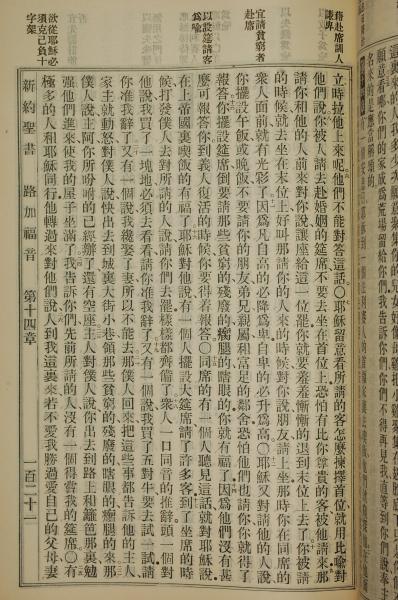 藉赴席訓人
謙卑
宜請貧窮者
赴席
以設筵請客
爲喻
欲從耶穌必
須克己負十
字架
立時拉他上來呢他們不能對答這話〇耶穌留意看所請的客怎麼揀擇首位就用比喻對
他們說你被人請去赴婚姻的筵席不要去坐在首位上恐怕有比你尊貴的客被他請來那
請你和他的人前來對你說讓座給這一位罷你就要羞羞慚慚的退到末位上去了你被請
的時候就去坐在末位上好叫那請你的人來的時候對你說朋友請上坐那時你在同席的
衆人面前就有光彩了因爲凡自高的必降爲卑自卑的必升爲高〇耶穌又對請他的人說
你擺設午飯或晚飯不要請你的朋友弟兄親屬和富足的鄰舍恐怕他們也請你你就得了
報答你擺設筵席倒要請那些貧窮的殘廢的瘸腿的瞎眼的你就有福了因爲他們沒有甚
麼可報答你到義人復活的時候你要得着報答〇同席的有一個人聽見這話就對耶穌說
在上帝國裏喫飯的有福了耶穌對他說有一個人擺設大筵席請了許多客到了坐席的時
候打發僕人去對所請的人說請你們去罷樣樣都齊備了衆人一口同音的推辭頭一個對
他說我買了一塊地必須去看看請你准我辭了又有一個說我買了五對牛要去試一試請
你准我辭了又有一個說我纔娶了妻所以不能去那僕人回來把這些事都告訴他的主人
家主就動怒對僕人說快出去到城裏大街小巷領那些貧窮的殘廢的瞎眼的瘸腿的來
僕人說主阿你所吩咐的已經辦了還有空座主人對僕人說你出去到路上和籬笆那裏勉
强他們進來使我的屋子坐滿了我告訴你們先前所請的人沒有一個得嘗我的筵席〇有
極多的人和耶穌同行他轉過來對他們說人到我這裏來若不愛我勝過愛自己的父母妻
新約聖書　路加福音　第十四章　百二十一